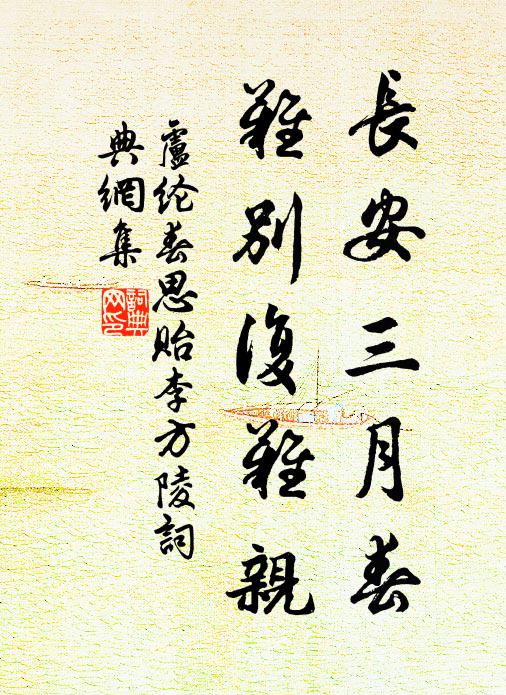 長安三月春
難別復難親
盧纶春思貽李方陵詞
典網集
詞典
网印